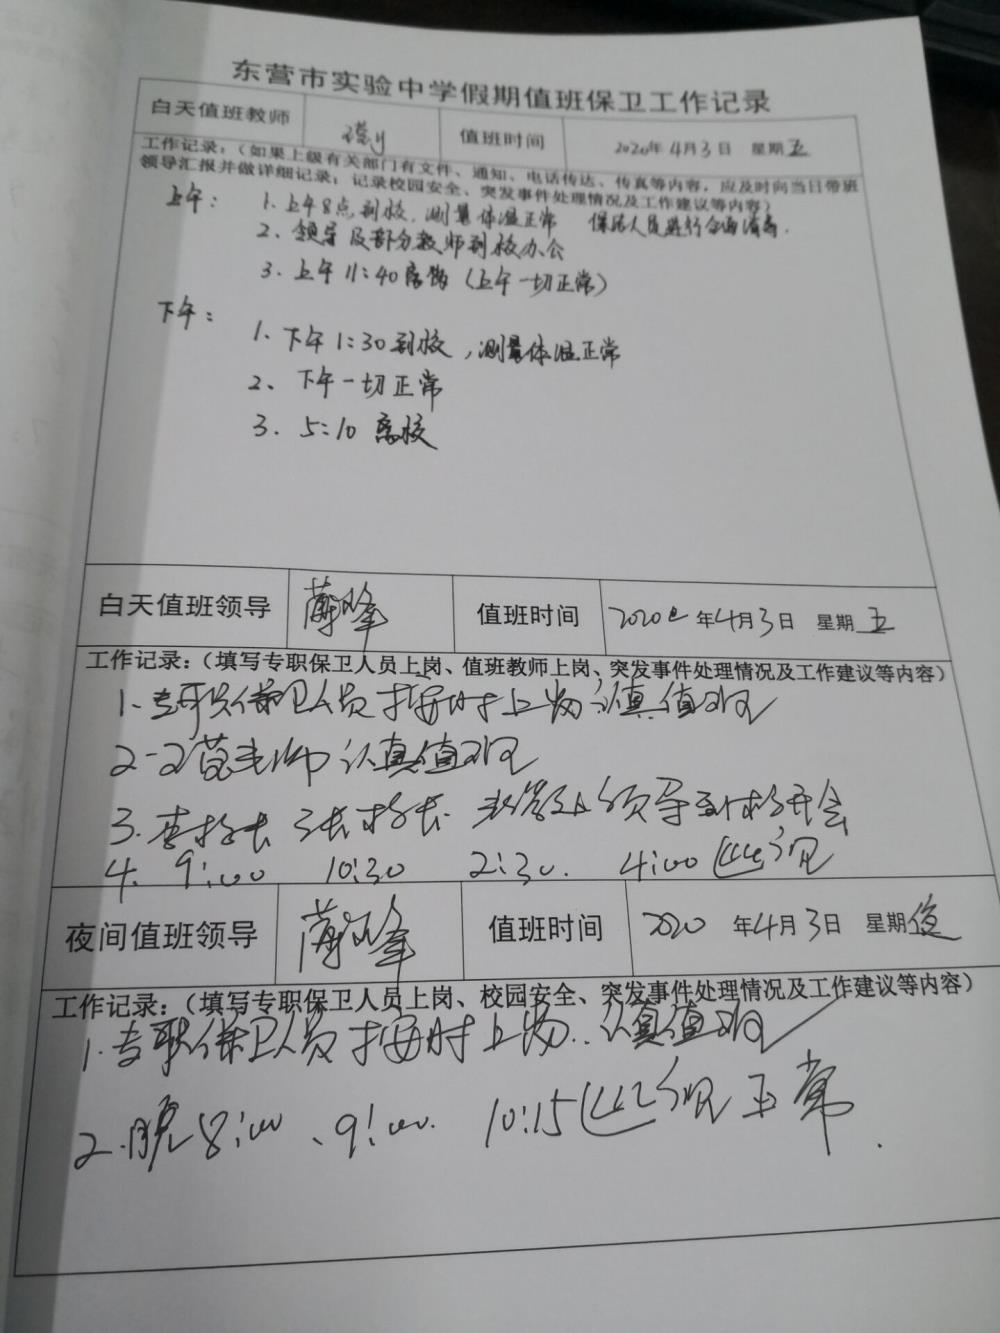 东营市实验中学假期值班保卫工作记录
白天值班教师 值班时间 2020年4月3日 星期五
工作记录：（如果上级有关部门有文件、通知、电话传达、传真等内容，应及时向当日带班
领导汇报并做详细记录；记录校园安全、突发事件处理情况及工作建议等内容）
上午： 1. 上午8点到校，测量体温正常 保洁人员进行全面消毒.
2. 领导及部分教师到校办会
3. 上午11:40离校（上午一切正常）
下午：
1. 下午1:30到校，测量体温正常
2、下午一切正常
3. 5:10离校
白天值班领导 薄 峰 值班时间 2020 年4月3日 星期五
工作记录：（填写专职保卫人员上岗、值班教师上岗、突发事件处理情况及工作建议等内容）
1. 专职保卫人员按时上岗认真值班
2 老师认真值班
3. 李校长 张校长 领导到校开会
4. 9:00 10:30 2:30. 4:00巡视
夜间值班领导 薄 峰 值班时间 2020 年4月3日 星期
工作记录：（填写专职保卫人员上岗、校园安全、突发事件处理情况及工作建议等内容）
1. 专职保卫人员按时上岗. 认真值班
2. 晚8:00、9:00. 10:15巡视正常.